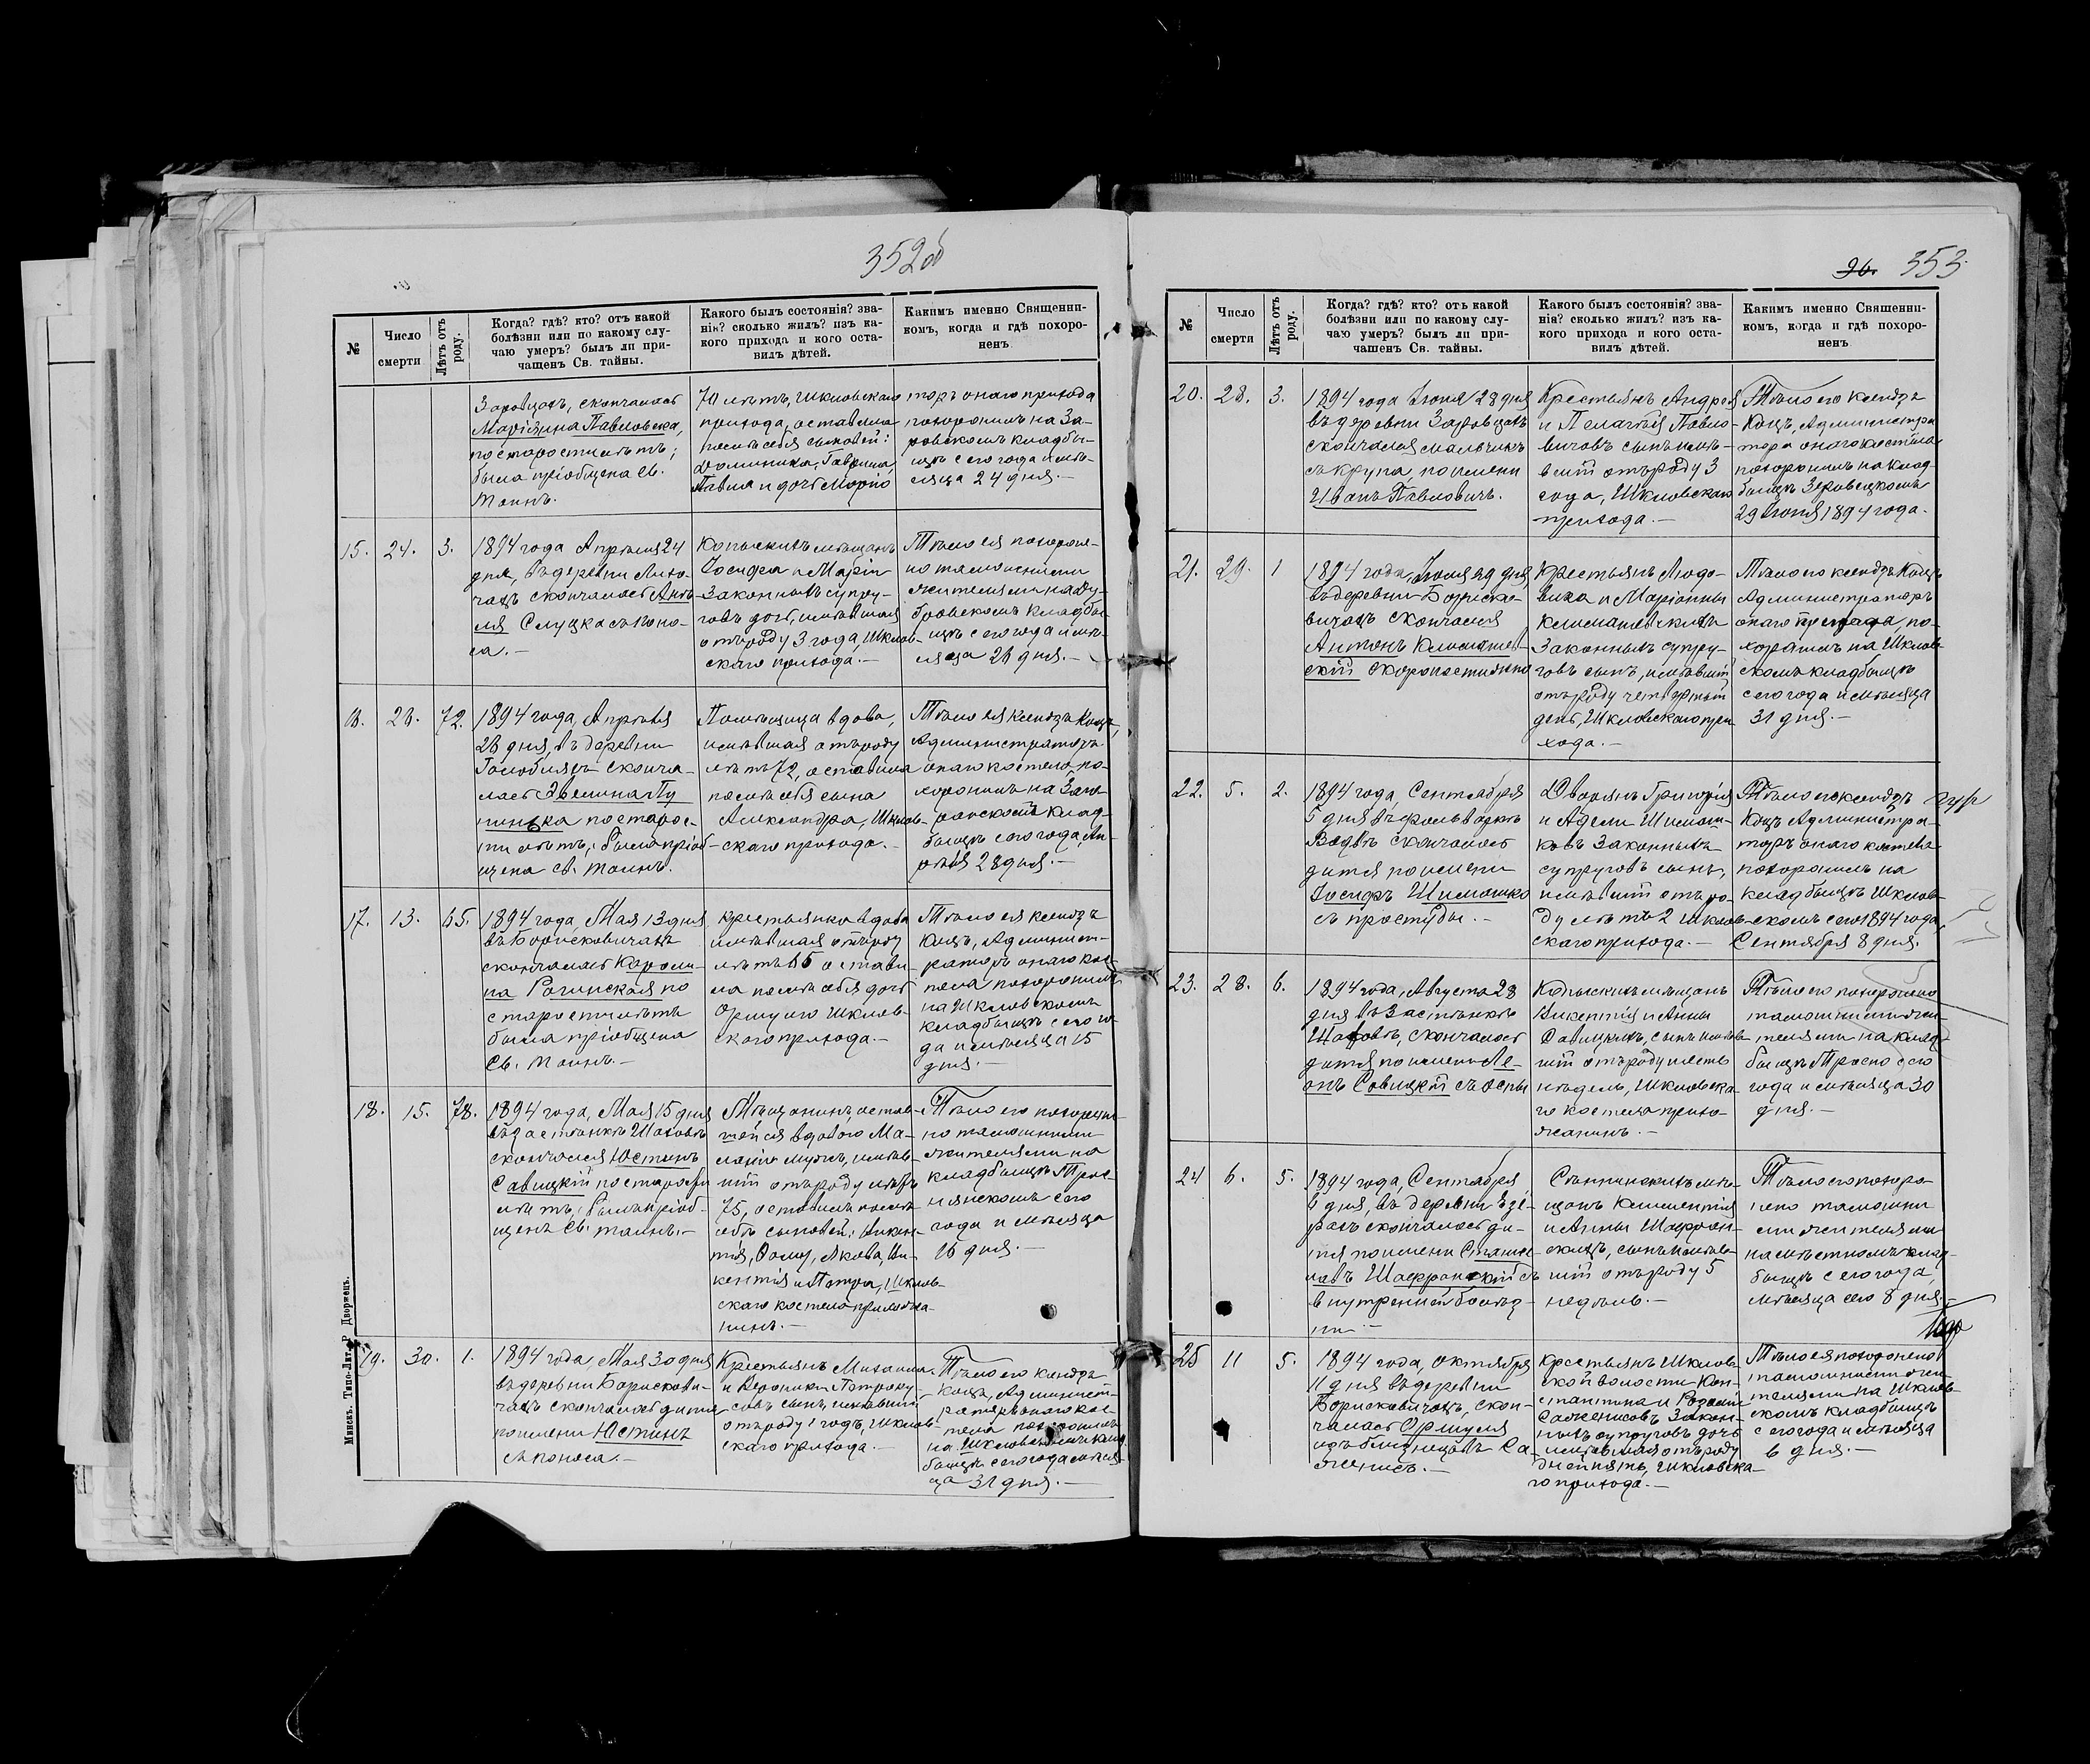 352об
№
Число
смерти
Лѣтъ отъ
роду.
Когда? гдѣ? кто? отъ какой
болѣзни или по какому слу-
чаю умеръ? былъ ли при-
чащенъ Св. тайны.
Какого былъ состоянія? зва-
нія? сколько жилъ? изъ ка-
кого прихода и кого оста-
вилъ дѣтей.
Какимъ именно Священни-
комъ, когда и гдѣ похоро-
ненъ
Заровцахъ, скончалась
Маріянна Павловска,
по старости лѣтъ;
была пріобщена Св.
Тоинъ.
70 лѣтъ, Шкловскаго
прихода, оставила
послѣ себя сыновей:
Доминика, Гаврила,
Павла и дочь Марію
торъ онаго прихода
похоронилъ на За-
ровскомъ кладби-
щѣ сего года и мѣ-
сяца 24 дня.-
15. 24. 3.
1894 года Апрѣля 24
дня, въ деревни
чахъ скончалась Анѣ-
ля Слуцка съ поно-
са.-
Копыскихъ мѣщанъ
Іосифа и Маріи
Законныхъ супру-
говъ дочь, имѣвшая
отъ роду 3 года, Шклов-
скаго прихода.-
Тѣло ея похороне-
но тамошними
жителями на Ду-
бровскомъ кладби-
щѣ сего года и мѣ-
сяца 26 дня.-
16. 26. 72.
1894 года, Апрѣля
26 дня, въ деревни
сконча-
лась Эвелина Пу
по старос-
ти лѣтъ; была пріоб-
щена Св. тоинъ.
Помѣщица вдова,
имѣвшая отъ роду
лѣтъ 72, оставила
послѣ себя сына
Александра, Шклов-
скаго прихода.-
Тѣло ея ксендзъ Коцъ,
Администраторъ
онаго костела, по-
хоронилъ на
клад-
бищѣ сего года, Ап-
рѣля 28 дня.-
17. 13. 65.
1894 года, Мая 13 дня
въ Борисковичахъ
скончалась Кароли-
на Рогинская по
старости лѣтъ
была пріобщена
Св. тоинъ.-
Крестьянка вдова
имѣвшая отъ роду
лѣтъ 65 остави-
ла послѣ себя дочь
Оршулю Шклов-
скаго прихода.-
Тѣло ея ксендзъ
Коцъ, Админист-
раторъ онаго кос-
тела похоронилъ
на Шкловскомъ
кладбищѣ сего го-
да и мѣсяца 15
дня.-
18. 15. 78.
1894 года, Мая 15 дня
въ застѣнкѣ Шаховѣ
скончался Юстинъ
Савицкій по старости
лѣтъ; былъ пріоб-
щенъ Св. таинъ.-
Мѣщанинъ, остав-
шейся вдовою Ма-
ланіи мужъ, имѣв-
шій отъ роду лѣтъ
75, оставилъ послѣ
себѣ сыновей: Викен-
тія, Фому, Якова, Ви-
кентія и Петра, Шклов-
скаго костела прихожа-
нинъ.-
Тѣло его похороне-
но тамошними
жителями на
кладбищѣ Трос-
нянскомъ сего
года и мѣсяца
16 дня.-
19. 30. 1.
1894 года, Мая 30 дня
въ деревни Борискови-
чахъ скончалось дитя
по имени Юстинъ
съ поноса.-
Крестьянъ Михаила
и Вероники
сынъ, имѣвшій
отъ роду 1 годъ, Шклов-
скаго прихода.-
Тѣло его ксендзъ
Коцъ, Админист-
раторъ онаго кос-
тела похоронилъ
на Шкловскомъ клад-
бищѣ сего года и мѣся-
ца 31 дня.-
Минскъ. Типо-Лит. Р. Дворжецъ.
96. 353
№
Число
смерти
Лѣтъ отъ
роду.
Когда? гдѣ? кто? отъ какой
болѣзни или по какому слу-
чаю умеръ? былъ ли при-
чашенъ Св. тайны.
Какого былъ состоянія? зва-
нія? сколько жилъ? изъ ка-
кого прихода и кого оста-
вилъ дѣтей.
Какимъ именно Священни-
комъ, когда и гдѣ похоро-
ненъ
20. 28. 3.
1894 года Іюля 28 дня
въ деревни Заровцахъ
скончался мальчикъ
съ крупа по имени
Иванъ Павловичъ.
Крестьянъ Андрея
и Пелагіи Павло-
вичовъ сынъ имѣ-
вшій отъ роду 3
года, Шкловскаго
прихода.-
Тѣло его ксендзъ
Коцъ, Администра
торъ онаго костела
похоронилъ на клад-
бищѣ Заровецкомъ
29 Іюля 1894 года.
21. 29. 1
1894 года, Іюля 29 дня
въ деревни Бориско-
вичахъ скончался
Антонъ Климашев-
скій скоропостижно
Крестьянъ Людо-
вика и Маріанны
Климашевскихъ
Законныхъ супру-
говъ сынъ, имѣвшій
отъ роду четвертый
день, Шкловскаго при
хода.-
Тѣло его ксендзъ Коцъ
Администраторъ
онаго прихода, по-
хоранилъ на Шклов-
скомъ кладбищѣ
сего года и мѣсяца
31 дня.-
22. 5. 2.
1894 года, Сентября
5 дня въ фольваркѣ
скончалось
дитя по имени
Іосифъ Шимашко
съ простуды.-
Дворянъ Григорія
и Адели Шимаш-
ковъ Законныхъ
супруговъ сынъ,
имѣвшій отъ ро-
ду лѣтъ 2 Шклов-
скаго прихода.-
Тѣло его ксендзъ
Коцъ Администра-
торъ онаго костела
похоронилъ на
кладбищѣ Шклов-
скомъ сего 1894 года,
Сентября 8 дня.
23. 28. 6.
1894 года, Августа 28
дня въ Застѣнкѣ
Шаховѣ, скончалось
дитя по имени Ле-
онъ Савицкій съ оспы
Копыскихъ мѣщанъ
Викентія и Анны
Савицкихъ, сынъ имѣв-
шій отъ роду шесть
недѣль, Шкловска-
го костела прихо-
жанинъ.-
Тѣло его похоронено
тамошними жи-
телями на клад-
бищѣ Тросно сего
года и мѣсяца 30
дня.-
24 6. 5.
1894 года, Сентября
6 дня, въ деревни Эзе-
рахъ скончалось ди-
тя по имени Станис-
лавъ Шафранскій съ
внутренней болѣз-
ни.-
мѣ-
щанъ Климентія
и Анны Шафран-
скихъ, сынъ имѣв-
шій отъ роду 5
недѣль.-
Тѣло его похоро-
нено тамошни
ми жителями
на мѣстномъ клад-
бищѣ сего года,
мѣсяца сего 8 дня.-
25 11 5.
1894 года, Октября
11 дня въ деревни
Борисковичахъ, скон-
чалась Оршуля
изъ близнецовъ Са-
женисъ.-
Крестьянъ Шклов-
ской волости Кон-
стантина и Розаліи
Саженисовъ Закон-
ныхъ супруговъ дочь
имѣвшая отъ роду
дней пять, Шкловска-
го прихода.-
Тѣло ея похоронено
тамошними жи-
телями на Шклов-
скомъ кладбищѣ
сего года и мѣсяца
6 дня.-